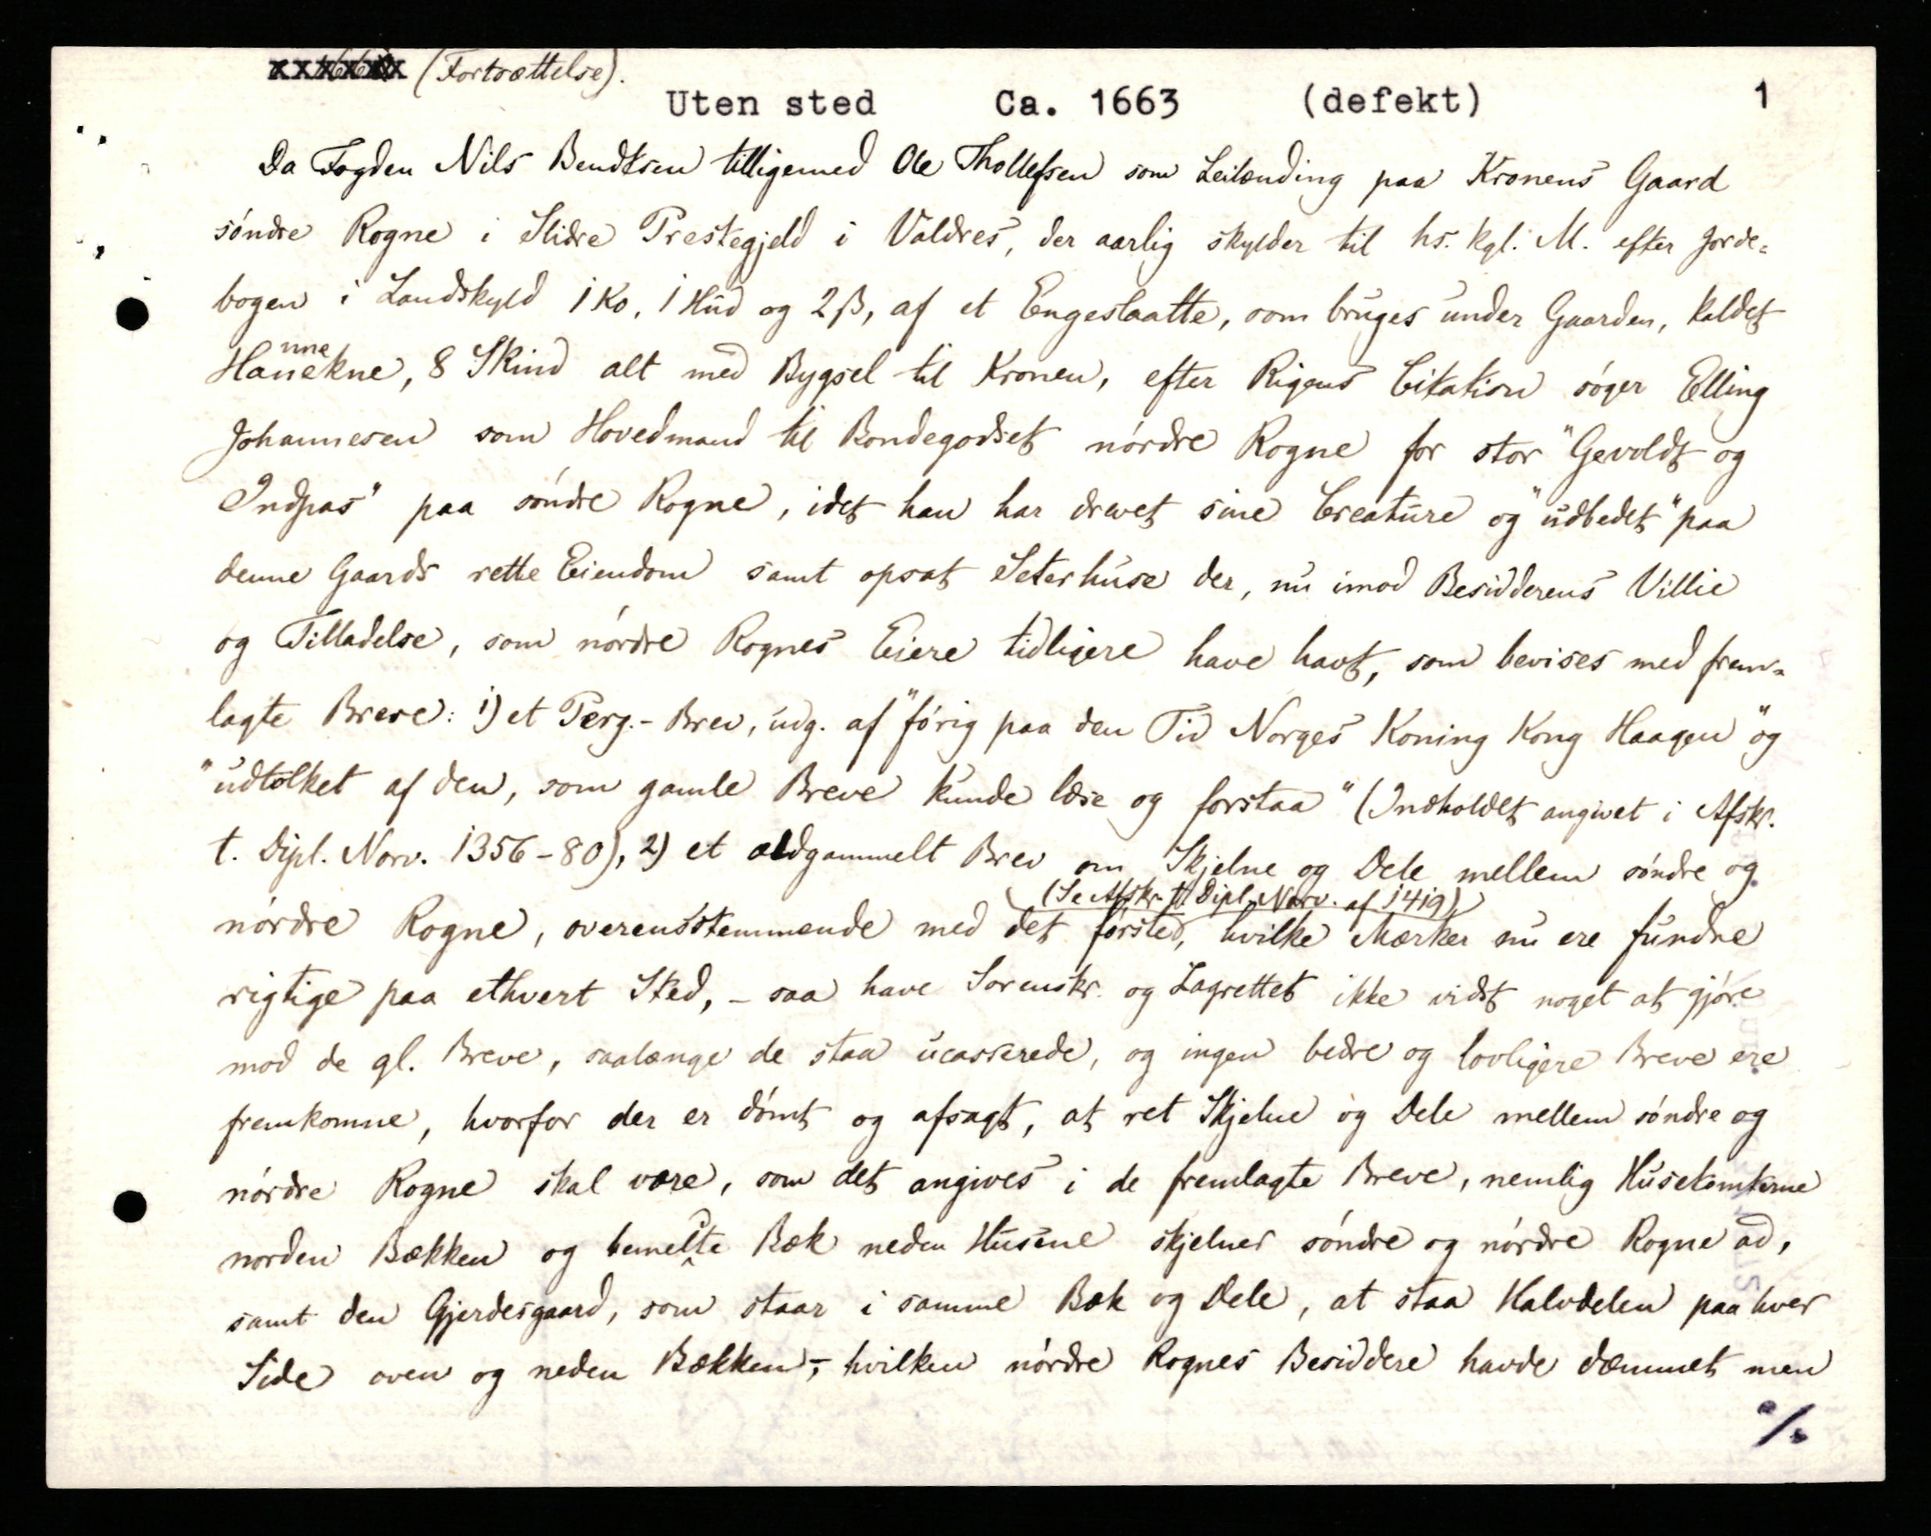 (Fortsættelse).
Uten sted Ca. 1663 (defekt) 1
Da Fogden Nils Bendtsen tilligemed Ole Thollefsen som Leilænding paa Kronens Gaard
söndre Rogne i Slidre Prestegjeld i Valdres, der aarlig skylder til hs. kgl. M. efter Jorde-
bogen i Landskyld 1 Ko, 1 Hud og 2 β, af et Engeslaatte, som bruges under Gaarden, kaldet
Hanekne, 8 Skind alt med Bygsel til Kronen, efter Rigens Citation söger Elling
nne
Johannesen som Hovedmand til Bondegodset nórdre Rogne for stor "Gevoldt og
Indpas" paa söndre Rogne, idet han har drevet sine Creature og "udbedet" paa
denne Gaards rette Eiendom samt opsat Seterhuse der, nu imod Besidderens Villie
og Tilladelse, som nórdre Rognes Eiere tidligere have havt, som bevises med frem-
lagte Breve: 1) et Perg.-Brev, udg. af "fórig paa den Tid Norges Koning Kong Haagen" og
"udtolket af den, som gamle Breve kunde læse og forstaa" (Indholdet angivet i Afskr.
t. Dipl. Norv. 1356-80), 2) et aldgammelt Brev om Skjelne og Dele mellem söndre og
(Se Afskr. t. Dipl. Norv. af 1419)
nórdre Rogne, overensstemmende med det fórsted, hvilke Mærker nu ere fundne
rigtige paa ethvert Sted, - saa have Sorenskr. og Lagrettet ikke vidst noget at gjóre
mod de gl. Breve, saalænge de staa ucasserede, og ingen bedre og lovligere Breve ere
fremkomne, hvorfor der er dómt og afsagt, at ret Skjelne og Dele mellem söndre og
nórdre Rogne skal være, som det angives i de fremlagte Breve, nemlig Husetomterne
norden Bækken og bemelte Bæk neden Husene skjelner söndre og nórdre Rogne ad,
samt den Gjerdesgaard, som staar i samme Bæk og Dele, at staa Halvdelen paa hver
Side oven og neden Bækken, - hvilken nórdre Rognes Besiddere havde dæmmet men
%